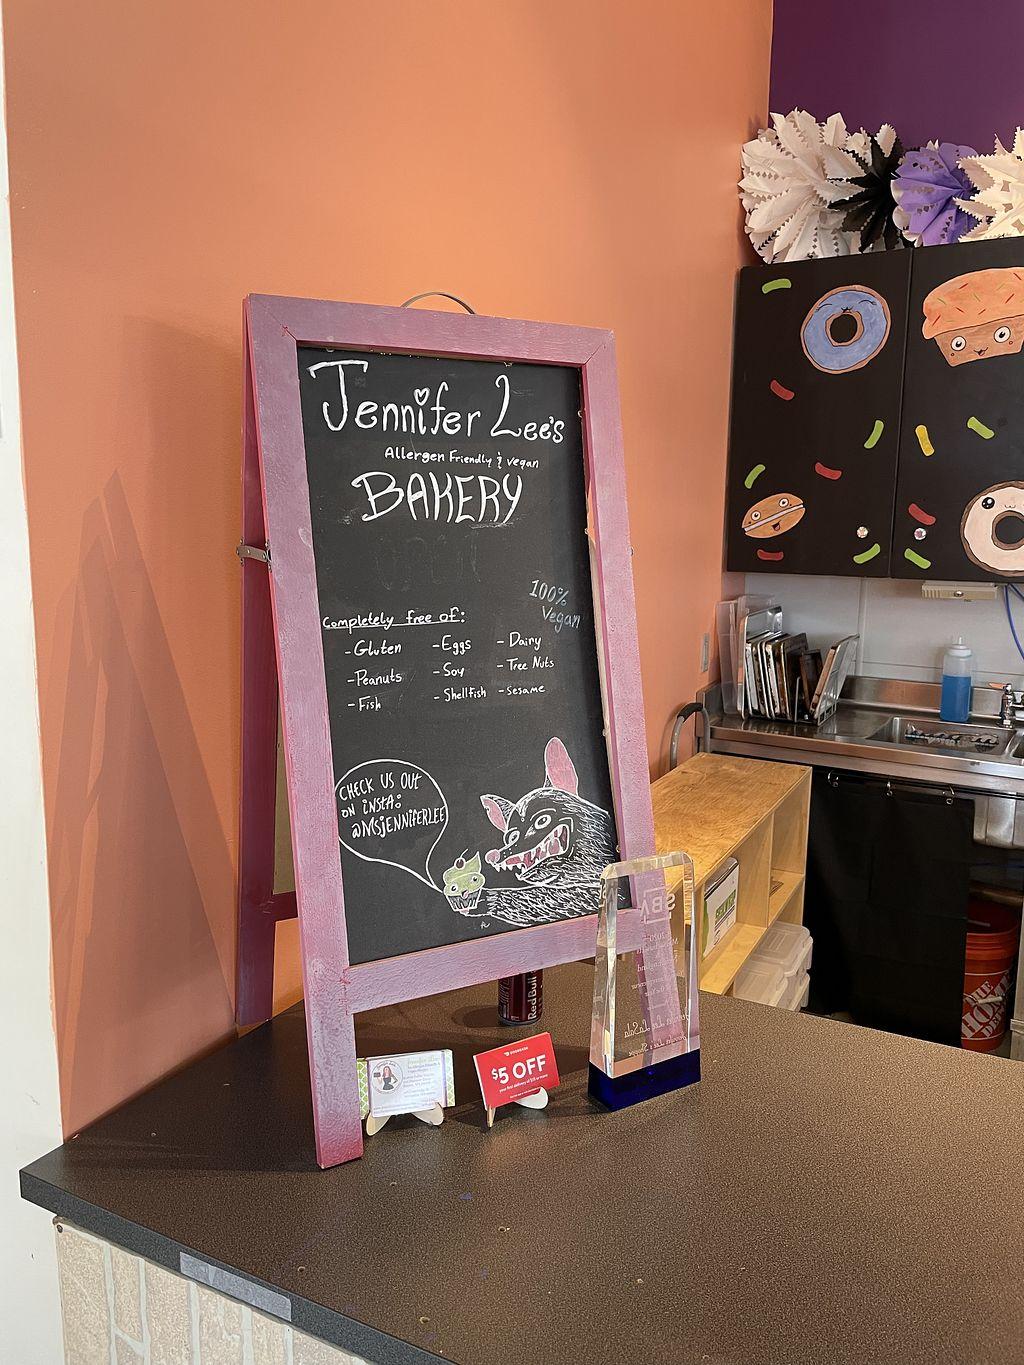 Jennifer Lee's
Allergen Friendly & vegan
BAKERY
100%
Vegan
Completely free of:
-Gluten -Eggs -Dairy
-Peanuts -Soy -Tree Nuts
-Fish -Shellfish -sesame
CHECK US OUT
ON iNSTA:
@MSJENNiFERLEE
SBA
Red Bull
DOORDASH
$5 OFF
THE
HOME